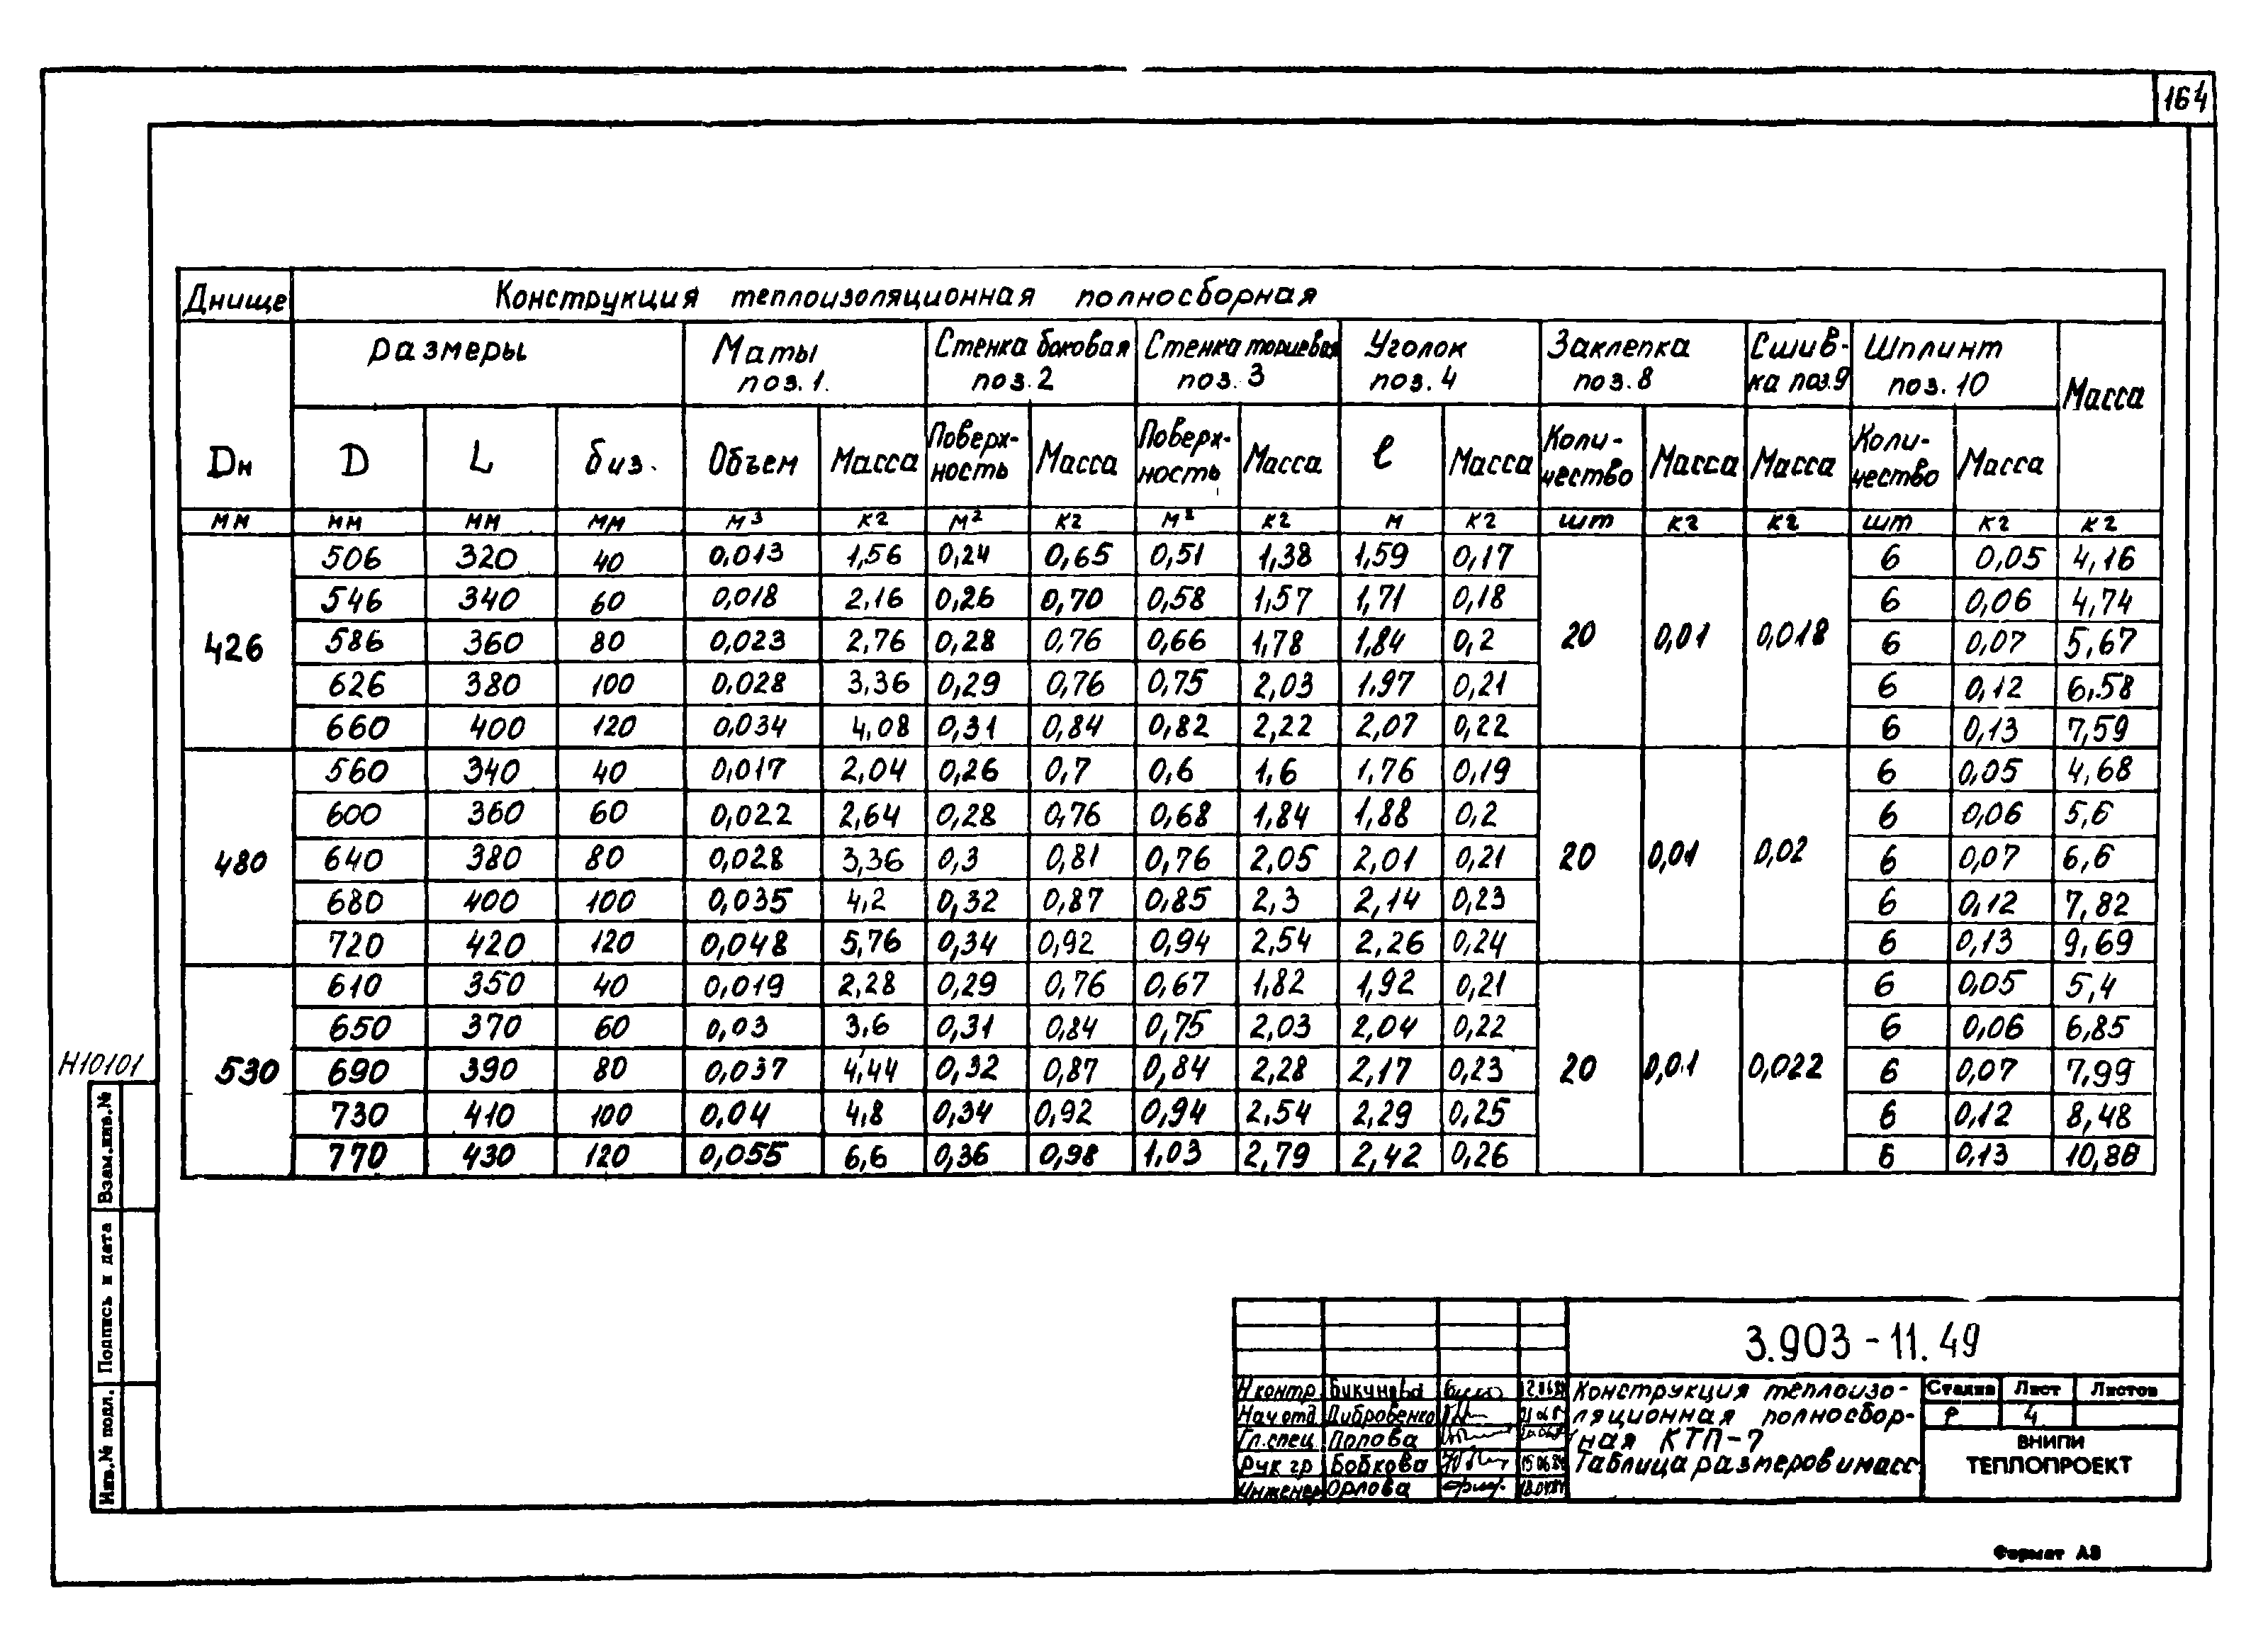 164
Днище Конструкция теплоизоляционная полносборная
размеры Маты поз. 1. Стенка боковая поз. 2 Стенка торцевая поз. 3 Уголок поз. 4 Заклепка поз. 8 Сшив-ка поз.9 Шплинт поз. 10 Масса
Dн D L биз. Объем Масса Поверх-ность Масса Поверх-ность Масса ℓ Масса Коли-чество Масса Масса Коли-чество Масса
мм мм мм мм м³ кг м² кг м² кг м кг шт кг кг шт кг кг
506 320 40 0,013 1,56 0,24 0,65 0,51 1,38 1,59 0,17 6 0,05 4,16
546 340 60 0,018 2,16 0,26 0,70 0,58 1,57 1,71 0,18 6 0,06 4,74
426 586 360 80 0,023 2,76 0,28 0,76 0,66 1,78 1,84 0,2 20 0,01 0,018 6 0,07 5,67
626 380 100 0,028 3,36 0,29 0,76 0,75 2,03 1,97 0,21 6 0,12 6,58
660 400 120 0,034 4,08 0,31 0,84 0,82 2,22 2,07 0,22 6 0,13 7,59
560 340 40 0,017 2,04 0,26 0,7 0,6 1,6 1,76 0,19 6 0,05 4,68
600 360 60 0,022 2,64 0,28 0,76 0,68 1,84 1,88 0,2 6 0,06 5,6
480 640 380 80 0,028 3,36 0,3 0,81 0,76 2,05 2,01 0,21 20 0,01 0,02 6 0,07 6,6
680 400 100 0,035 4,2 0,32 0,87 0,85 2,3 2,14 0,23 6 0,12 7,82
720 420 120 0,048 5,76 0,34 0,92 0,94 2,54 2,26 0,24 6 0,13 9,69
610 350 40 0,019 2,28 0,29 0,76 0,67 1,82 1,92 0,21 6 0,05 5,4
650 370 60 0,03 3,6 0,31 0,84 0,75 2,03 2,04 0,22 6 0,06 6,85
530 690 390 80 0,037 4,44 0,32 0,87 0,84 2,28 2,17 0,23 20 0,01 0,022 6 0,07 7,99
730 410 100 0,04 4,8 0,34 0,92 0,94 2,54 2,29 0,25 6 0,12 8,48
770 430 120 0,055 6,6 0,36 0,98 1,03 2,79 2,42 0,26 6 0,13 10,88
Н10101
Взам.инв.№
Подпись и дата
Инв.№ подл.
3.903-11.49
Н контр. Бикунова
Нач отд Дибровенко
Гл.спец Попова
Рук гр Бобкова 15.06.84
Инженер Орлова
Конструкция теплоизо-
ляционная полносбор-
ная КТП-7
Таблица размеров и масс
Стадия Лист Листов
Р 4
ВНИПИ
ТЕПЛОПРОЕКТ
Формат А3